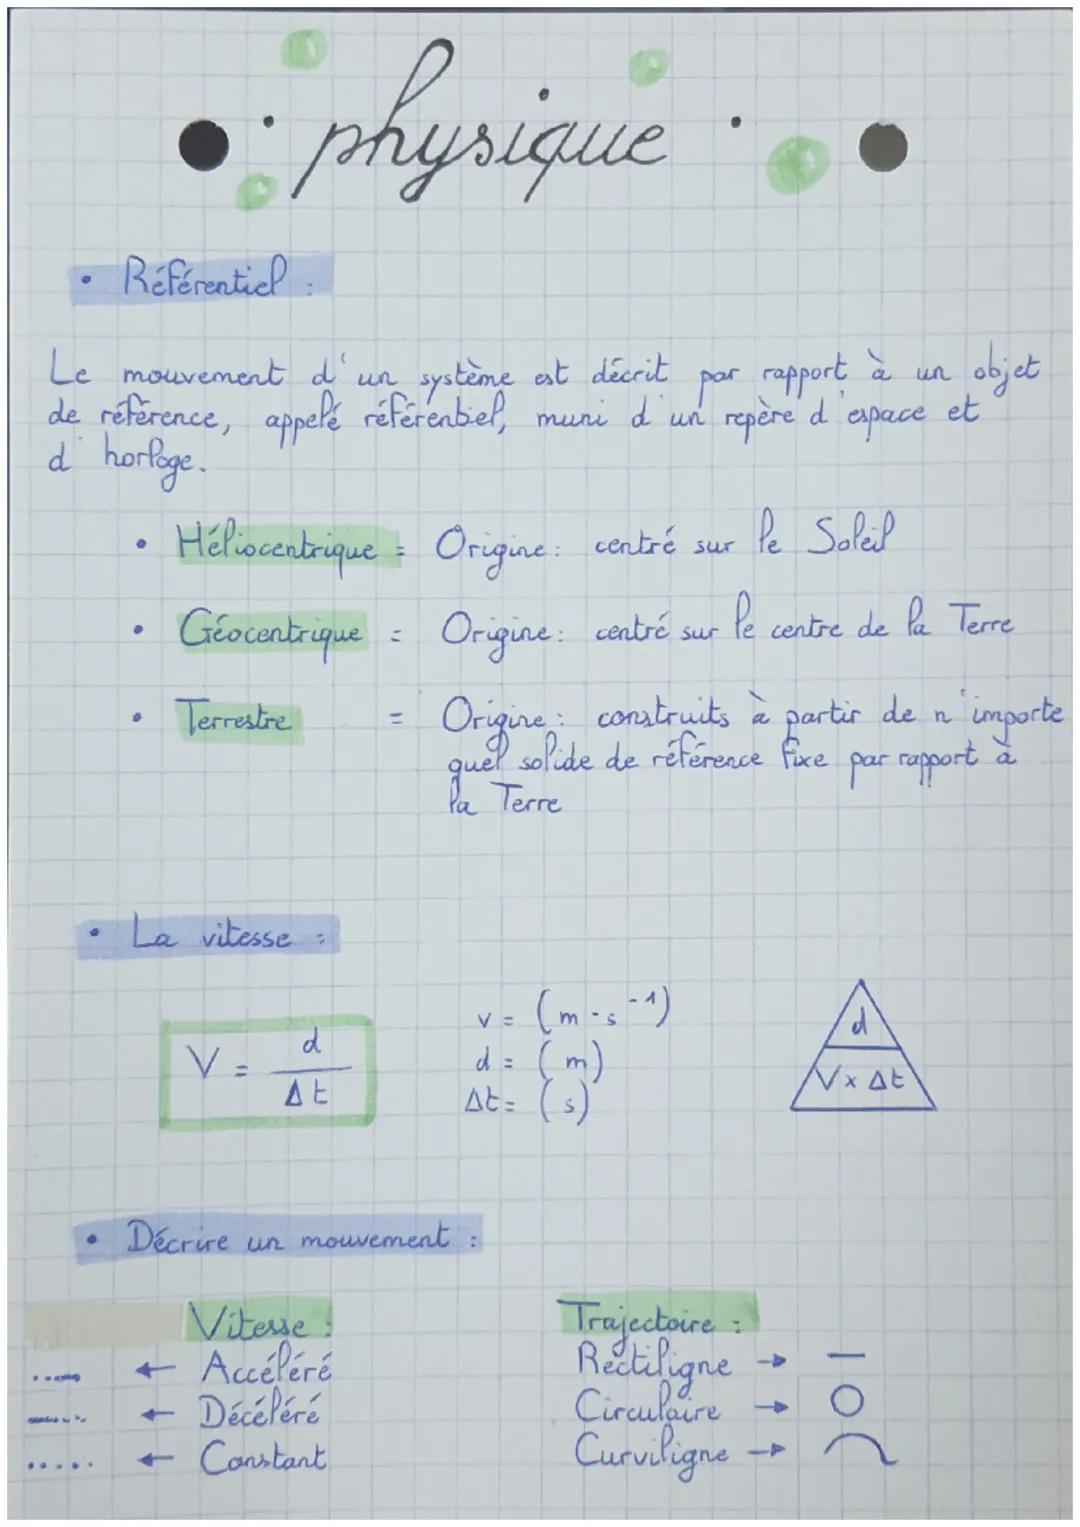 physique
• Référentiel :
Le mouvement d'un système est décrit par rapport à un objet
de référence, appelé référentiel, muni d'un repère d'espace et
d'horloge.
• Héliocentrique = Origine : centré sur le Soleil
• Géocentrique = Origine : centré sur le centre de la Terre
• Terrestre = Origine : construits à partir de n'importe
quel solide de référence fixe par rapport à
la Terre
• La vitesse :
V = d / Δt
v = (m·s⁻¹)
d = (m)
Δt = (s)
d
V × Δt
• Décrire un mouvement :
Vitesse :
← Accéléré
← Décéléré
← Constant
Trajectoire :
Rectiligne →
Circulaire →
Curviligne →